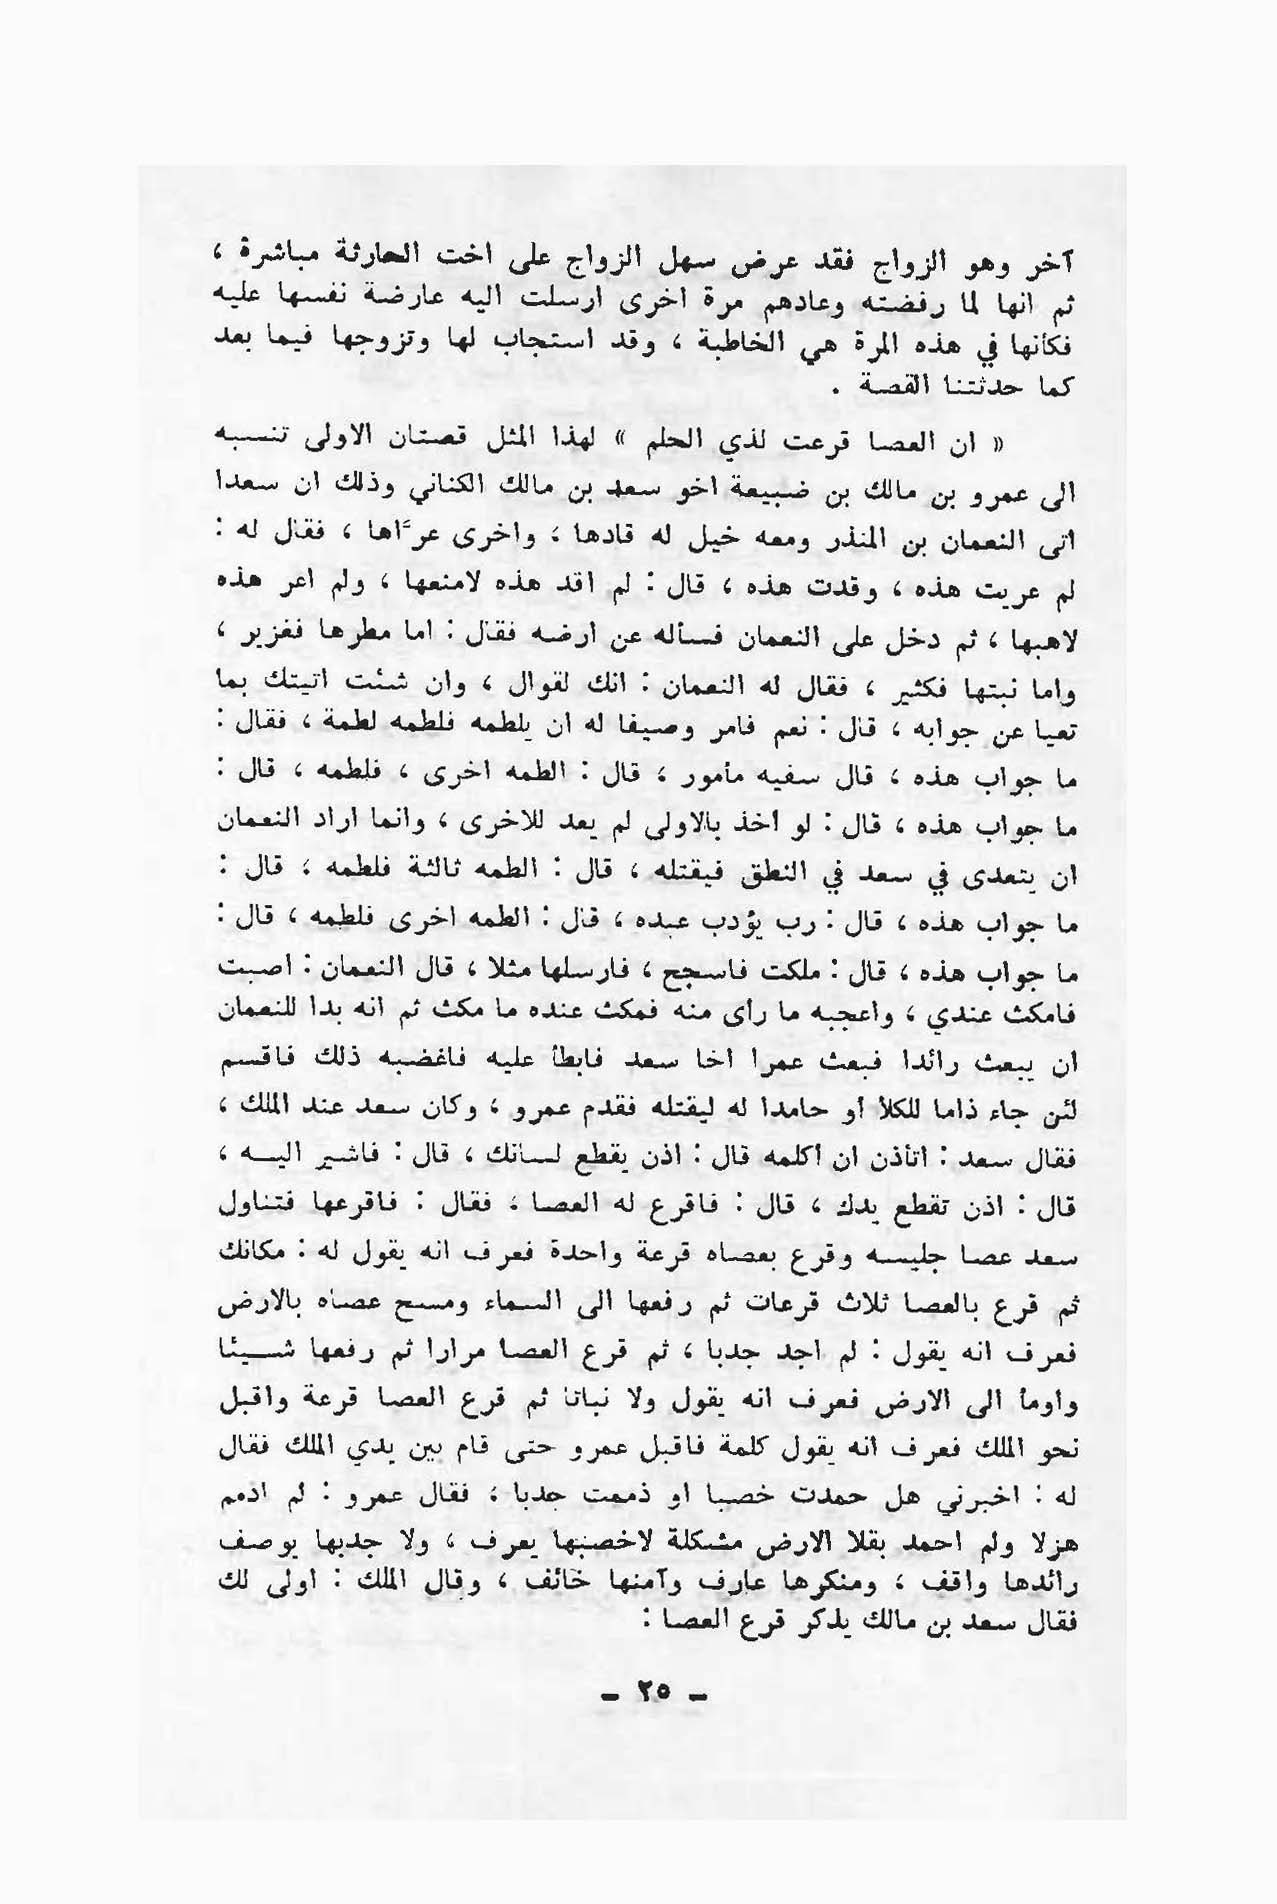 آخر وهو الزواج فقد عرض سهل الزواج على اخت الحارثة مباشرة ،
ثم انها لما رفضته وعادهم مرة اخرى ارسلت اليه عارضة نفسها عليه
فكأنها في هذه المرة هي الخاطبة ، وقد استجاب لها وتزوجها فيما بعد
كما حدثتنا القصة .
« ان العصا قرعت لذي الحلم » لهذا المثل قصتان الاولى تنسبه
الى عمرو بن مالك بن ضبيعة اخو سعد بن مالك الكناني وذلك ان سعدا
اتى النعمان بن المنذر ومعه خيل له قادها ، واخرى عرّاها ، فقال له :
لم عريت هذه ، وقدت هذه ، قال : لم اقد هذه لامنعها ، ولم اعر هذه
لاهبها ، ثم دخل على النعمان فسأله عن ارضه فقال : اما مطرها فغزير ،
واما نبتها فكثير ، فقال له النعمان : انك لقوال ، وان شئت اتيتك بما
تعيا عن جوابه ، قال : نعم فامر وصيفا له ان يلطمه فلطمه لطمة ، فقال :
ما جواب هذه ، قال سفيه مأمور ، قال : الطمه اخرى ، فلطمه ، قال :
ما جواب هذه ، قال : لو أخذ بالاولى لم يعد للاخرى ، وانما اراد النعمان
ان يتعدى في سعد في النطق فيقتله ، قال : الطمه ثالثة فلطمه ، قال :
ما جواب هذه ، قال : رب يؤدب عبده ، قال : الطمه اخرى فلطمه ، قال :
ما جواب هذه ، قال : ملكت فاسجح ، فارسلها مثلا ، قال النعمان : اصبت
فامكث عندي ، واعجبه ما رأى منه فمكث عنده ما مكث ثم انه بدا للنعمان
ان يبعث رائدا فبعث عمرا اخا سعد فابطأ عليه فاغضبه ذلك فاقسم
لئن جاء ذاما للكلأ أو حامدا له ليقتله فقدم عمرو ، وكان سعد عند الملك ،
فقال سعد : اتأذن ان أكلمه قال : اذن يقطع لسانك ، قال : فاشير اليه ،
قال : اذن تقطع يدك ، قال : فاقرع له العصا ، فقال : فاقرعها فتناول
سعد عصا جليسه وقرع بعصاه قرعة واحدة فعرف انه يقول له : مكانك
ثم قرع بالعصا ثلاث قرعات ثم رفعها الى السماء ومسح عصاه بالارض
فعرف انه يقول : لم اجد جدبا ، ثم قرع العصا مرارا ثم رفعها شيئا
واومأ الى الارض فعرف انه يقول ولا نباتا ثم قرع العصا قرعة واقبل
نحو الملك فعرف انه يقول كلمة فاقبل عمرو حتى قام بين يدي الملك فقال
له : اخبرني هل حمدت خصبا او ذممت جدبا ، فقال عمرو : لم اذمم
هزلا ولم احمد بقلا الارض مشكلة لاخصبها يعرف ، ولا جدبها يوصف
رائدها واقف ، ومنكرها عارف وآمنها خائف ، وقال الملك : اولى لك
فقال سعد بن مالك يذكر قرع العصا :
- ٢٥ -